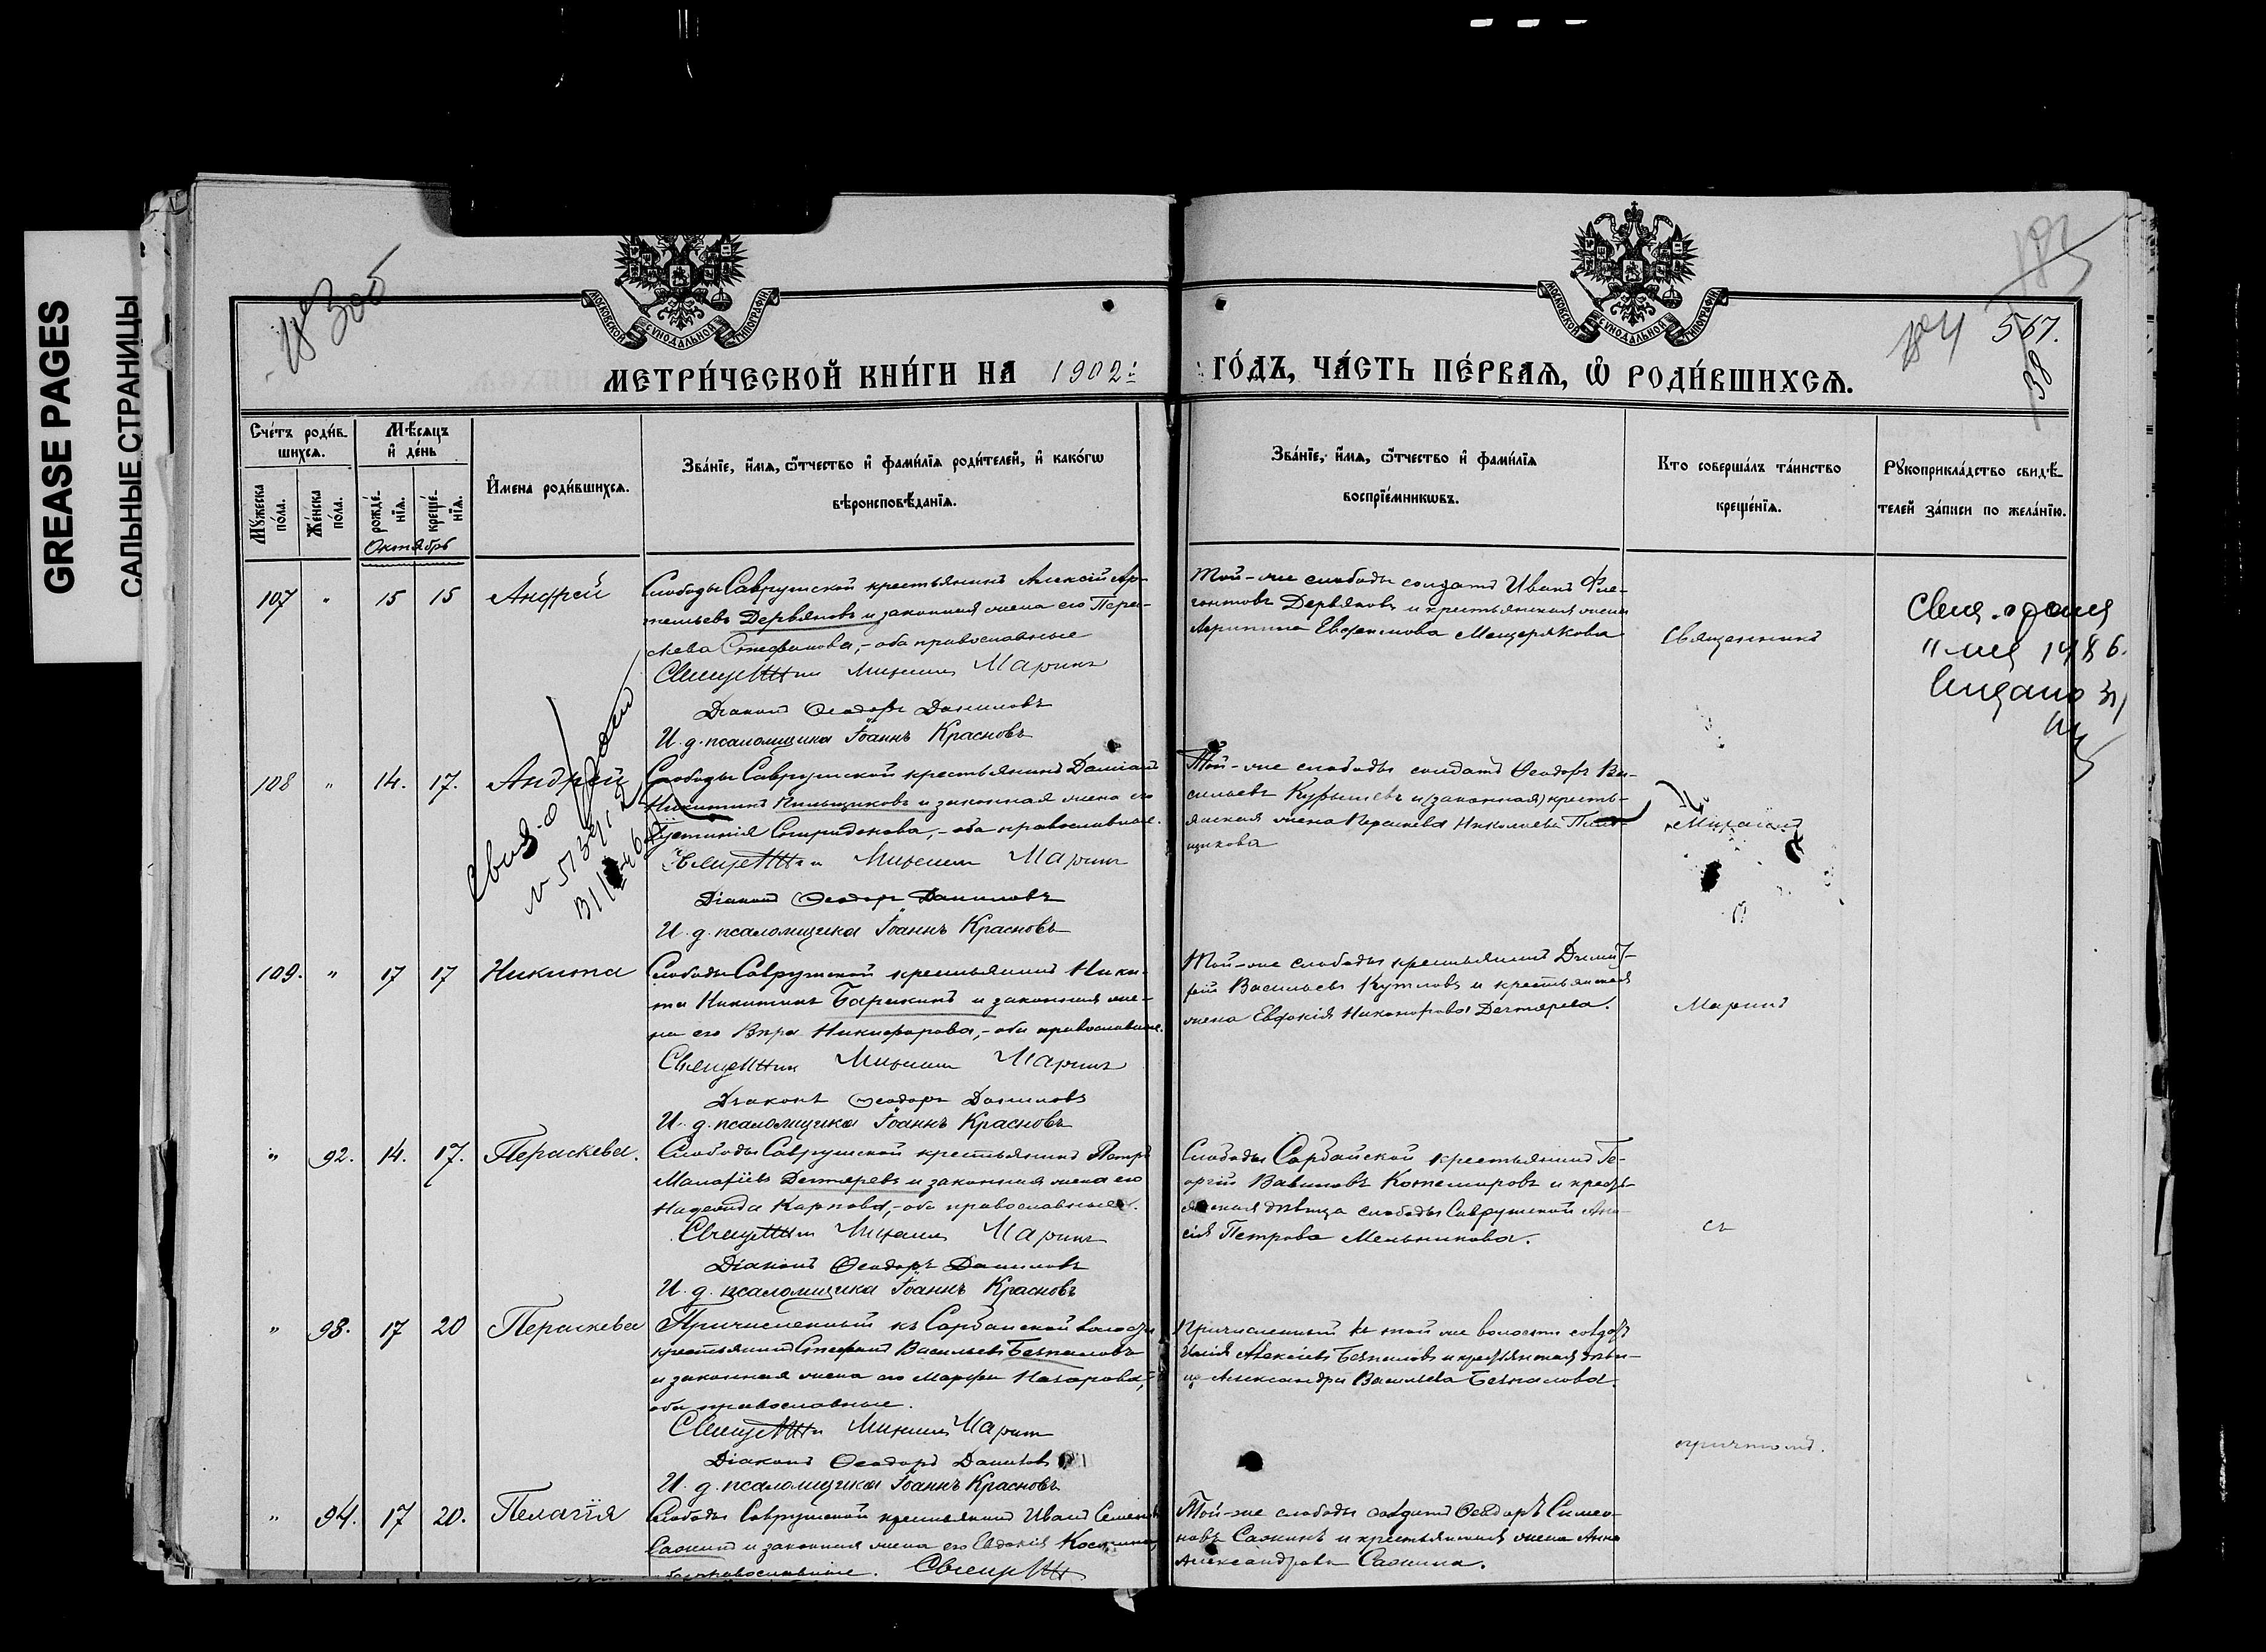 GREASE PAGES
САЛЬНЫЕ СТРАНИЦЫ
МОСКОВСКОЙ СѴНОДАЛЬНОЙ ТИПОГРАФІИ
МОСКОВСКОЙ СѴНОДАЛЬНОЙ ТИПОГРАФІИ
567.
38
МЕТРИ́ЧЕСКОЙ КНИ́ГИ НА 1902
ГО́ДЪ, ЧА́СТЬ ПЕ́РВАѦ, Ѽ РОДИ́ВШИХСѦ.
Сче́тъ роди́в-
шихсѧ.
Мꙋ́жеска по́ла.
Же́нска по́ла.
Мѣ́сѧцъ
и҆ де́нь
рожде́-
нїѧ.
креще́-
нїѧ.
Октябрь
И҆́мена роди́вшихсѧ.
Зва́нїе, и҆́мѧ, ѻ҆́тчество и҆ фами́лїѧ роди́телей, и҆ како́гѡ
вѣроисповѣ́данїѧ.
Зва́нїе, и҆́мѧ, ѻ҆́тчество и҆ фами́лїѧ
воспрїе́мникѡвъ.
Кто соверша́лъ та́инство
креще́нїѧ.
Рꙋкоприкла́дство свидѣ́-
телей за́писи по жела́нїю.
107 " 15 15 Андрей
Слободы Саврушской крестьянинъ Алексій Ар-
темьевъ Дервяновъ и законная жена его Парас-
кева Стефанова,- оба православные
Священникъ Михаилъ Маринъ
Діаконъ Ѳеодоръ Даниловъ
И. д. псаломщика Іоаннъ Красновъ
Той-же слободы солдатъ Иванъ
Дервяновъ и крестьянская жена
Агрипина Евфимова Мещерякова
Священникъ
108 " 14. 17. Андрей
Слободы Саврушской крестьянинъ Даміанъ
Никитинъ Пильщиковъ и законная жена его
Іустинія Спиридонова,- оба православные.
Священникъ Михаилъ Маринъ
Діаконъ Ѳеодоръ Даниловъ
И. д. псаломщика Іоаннъ Красновъ
Той-же слободы солдатъ Ѳеодоръ Ва-
сильевъ и (законная) кресть-
янская жена Параскева Николаева Пиль-
щикова
Михаилъ
109. " 17 17 Никита
Слободы Саврушской крестьянинъ Ники-
та Никитинъ Барякинъ и законная же-
на его Вѣра Никифорова,- оба православные.
Священникъ Михаилъ Маринъ
Діаконъ Ѳеодоръ Даниловъ
И. д. псаломщика Іоаннъ Красновъ
Той-же слободы крестьянинъ Димит-
рій Васильевъ Кутловъ и крестьянская
жена Евдокія Никонорова Дегтярева.
Маринъ
" 92. 14. 17. Параскева.
Слободы Саврушской крестьянинъ Петръ
Малафіевъ Дегтяревъ и законная жена его
Надежда Карпова,- оба православные.
Священникъ Михаилъ Маринъ
Діаконъ Ѳеодоръ Даниловъ
И. д. псаломщика Іоаннъ Красновъ
Слободы Сарбайской крестьянинъ Ге-
оргій Вавиловъ Котемировъ и кресть-
янская дѣвица слободы Саврушской
Петрова Мельникова.
съ
" 93. 17 20 Параскева
Причисленный къ Сарбайской волости
крестьянинъ Стефанъ Васильевъ Безпаловъ
и законная жена его Марфа Назарова,
оба православные.
Священникъ Михаилъ Маринъ
Діаконъ Ѳеодоръ Даниловъ
И. д. псаломщика Іоаннъ Красновъ
Причисленный къ той же волости солдатъ
Илія Алексіевъ Безпаловъ и крестьянская дѣви-
ца Александра Васильева Безпалова.
причтомъ.
" 94. 17 20. Пелагія
Слободы Саврушской крестьянинъ Иванъ Семеновъ
Сажинъ и законная жена его Евдокія Космина
оба православные. Священникъ
Той-же слободы солдатъ Ѳеодоръ Симео-
новъ Сажинъ и крестьянская жена Анна
Александрова Сажина.